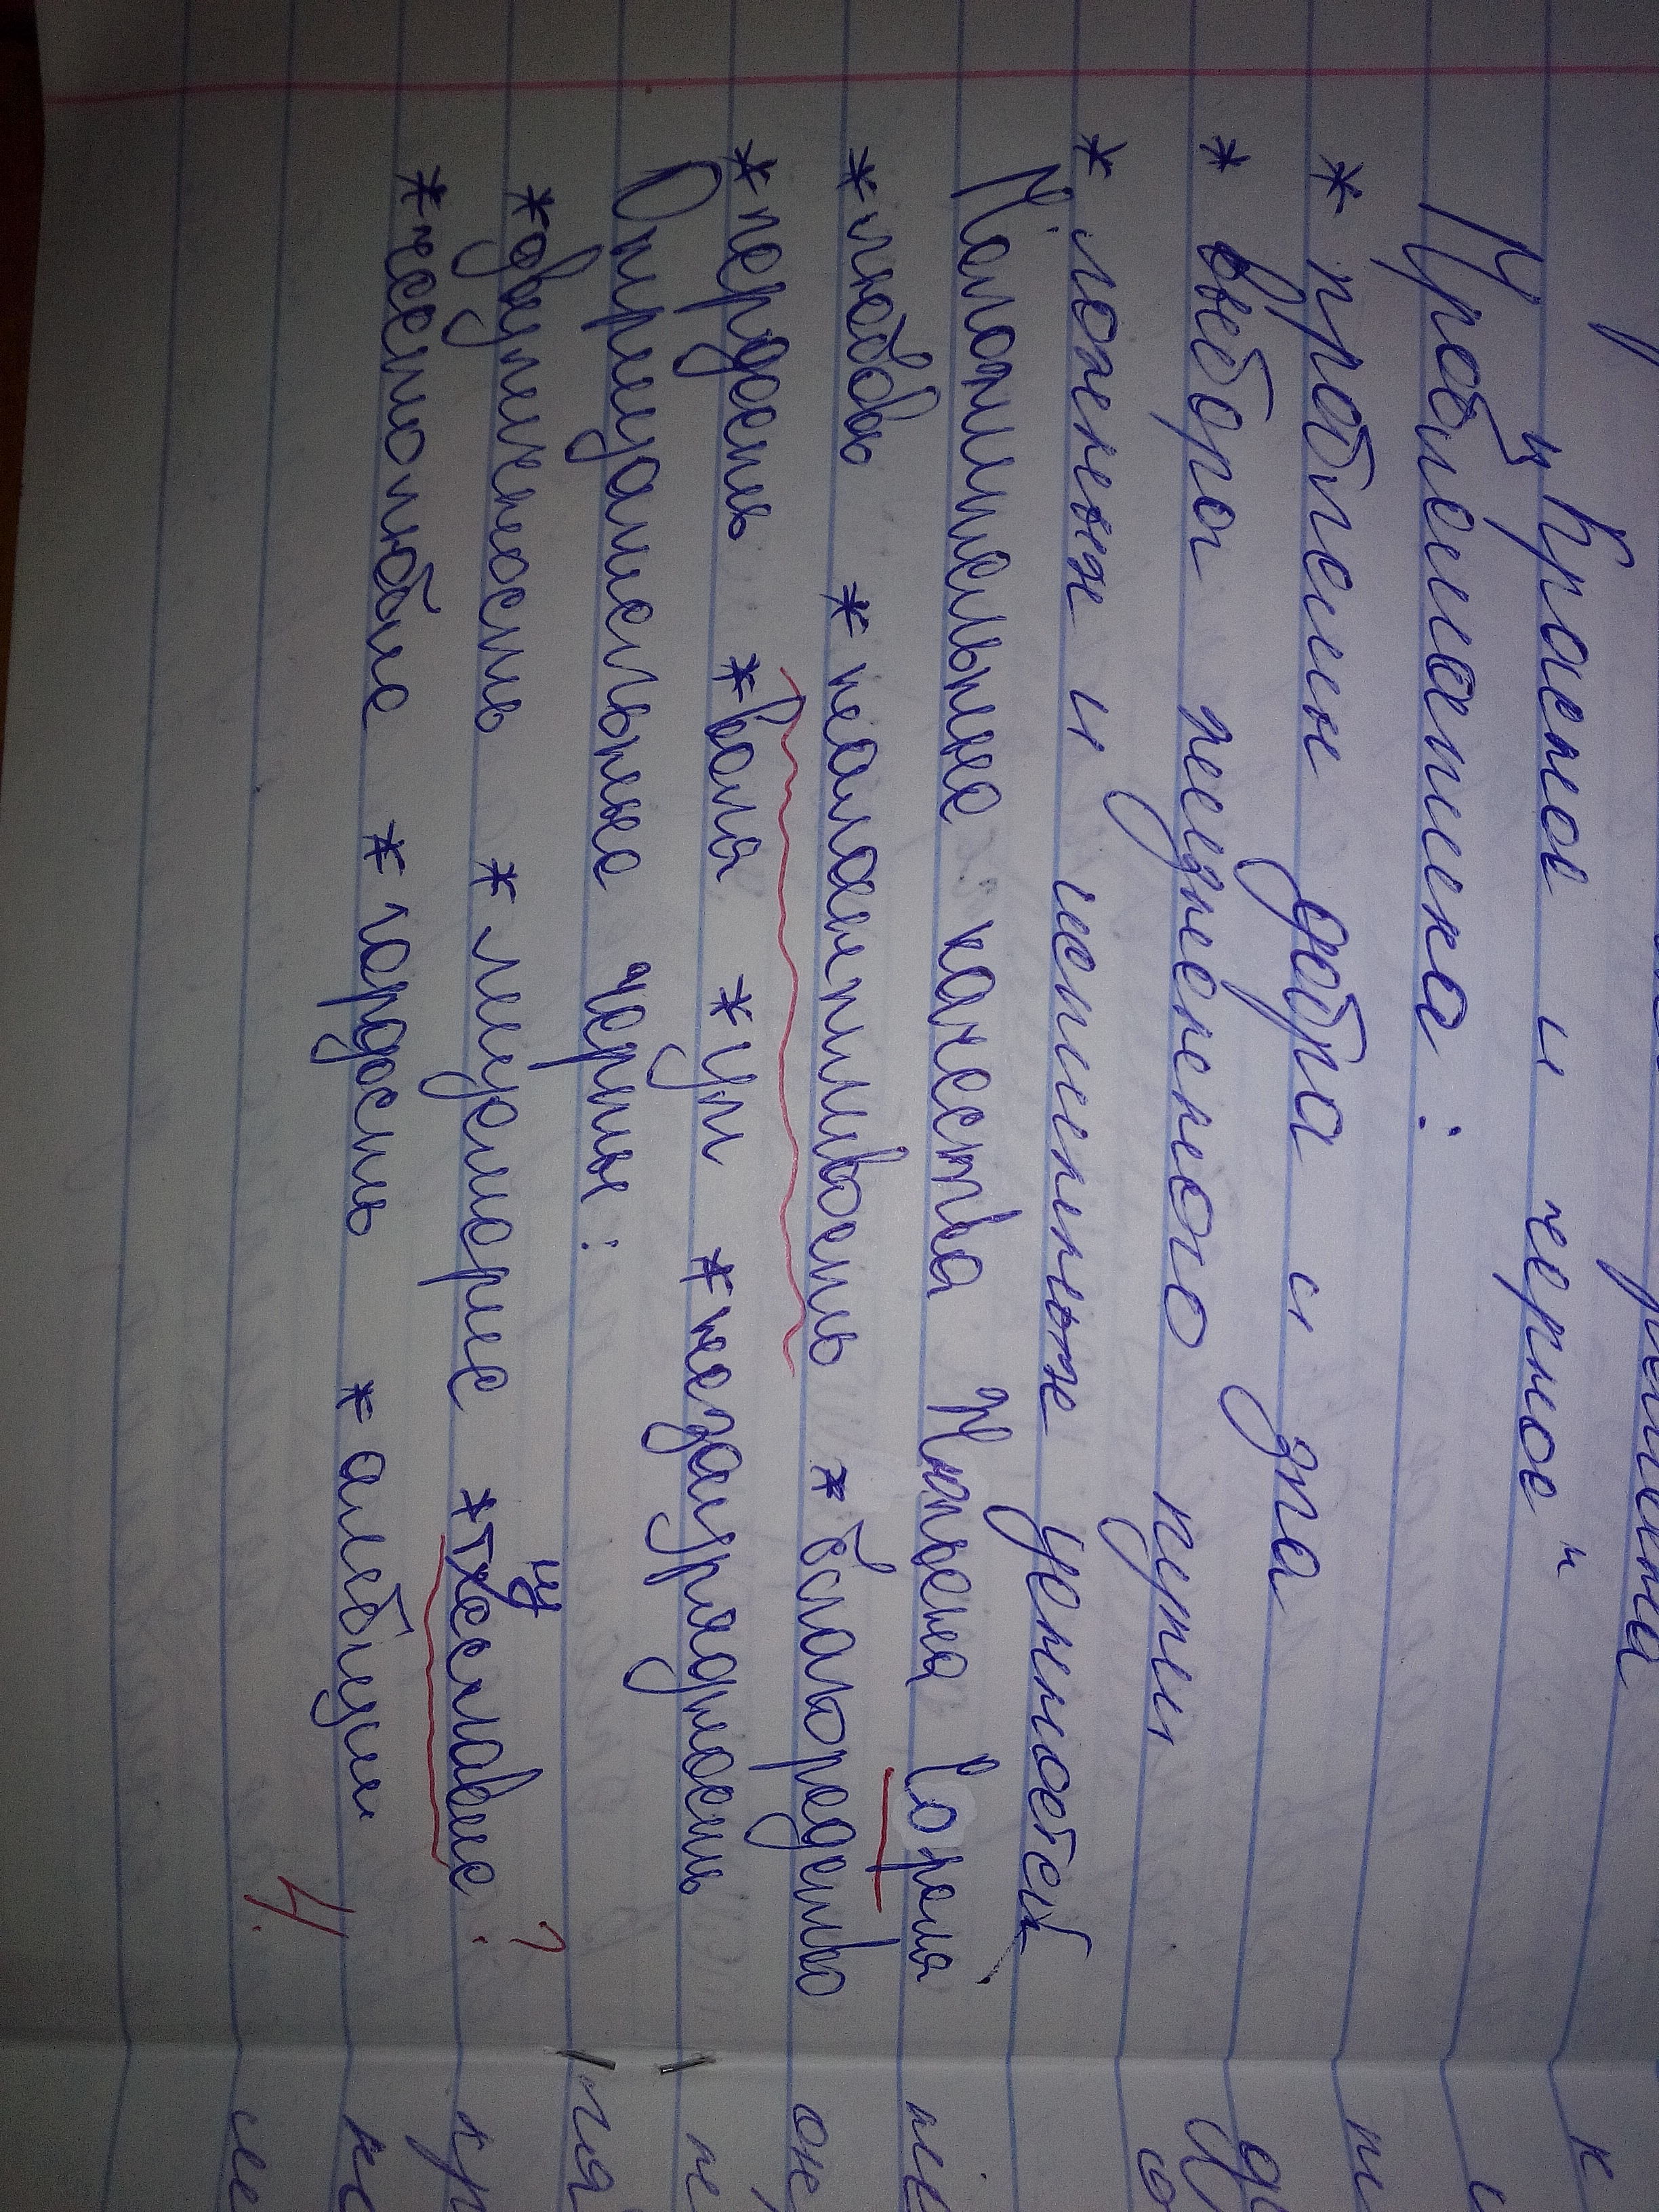 „Красное и черное"
Проблематика:
* проблемы добра и зла
* выбора жизненного пути
* ложных и истинных ценностей
Положительные качества Жюльена Сореля
* любовь * талантливость * благородство
* гордость * воля * ум * незаурядность
Отрицательные черты:
* двуличность * лицемерие * тщеславие ?
* честолюбие * гордость * амбиции